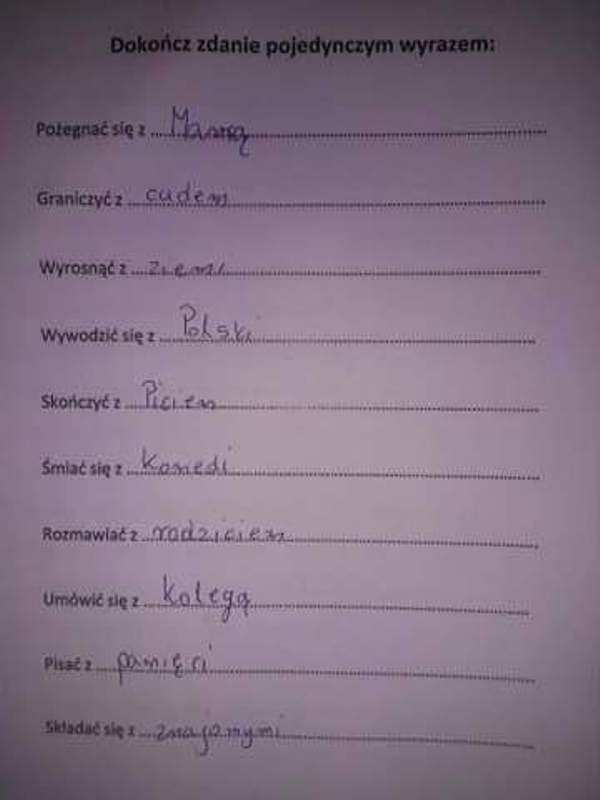 Dokończ zdanie pojedynczym wyrazem:
Pożegnać się z ....Mamą....
Graniczyć z ....cudem....
Wyrosnąć z ....ziemi....
Wywodzić się z ....Polski....
Skończyć z ....Piciem....
Śmiać się z ....Komedi....
Rozmawiać z ....rodziciem....
Umówić się z ....Kolegą....
Pisać z ....pamięci....
Składać się z ....znajomymi....